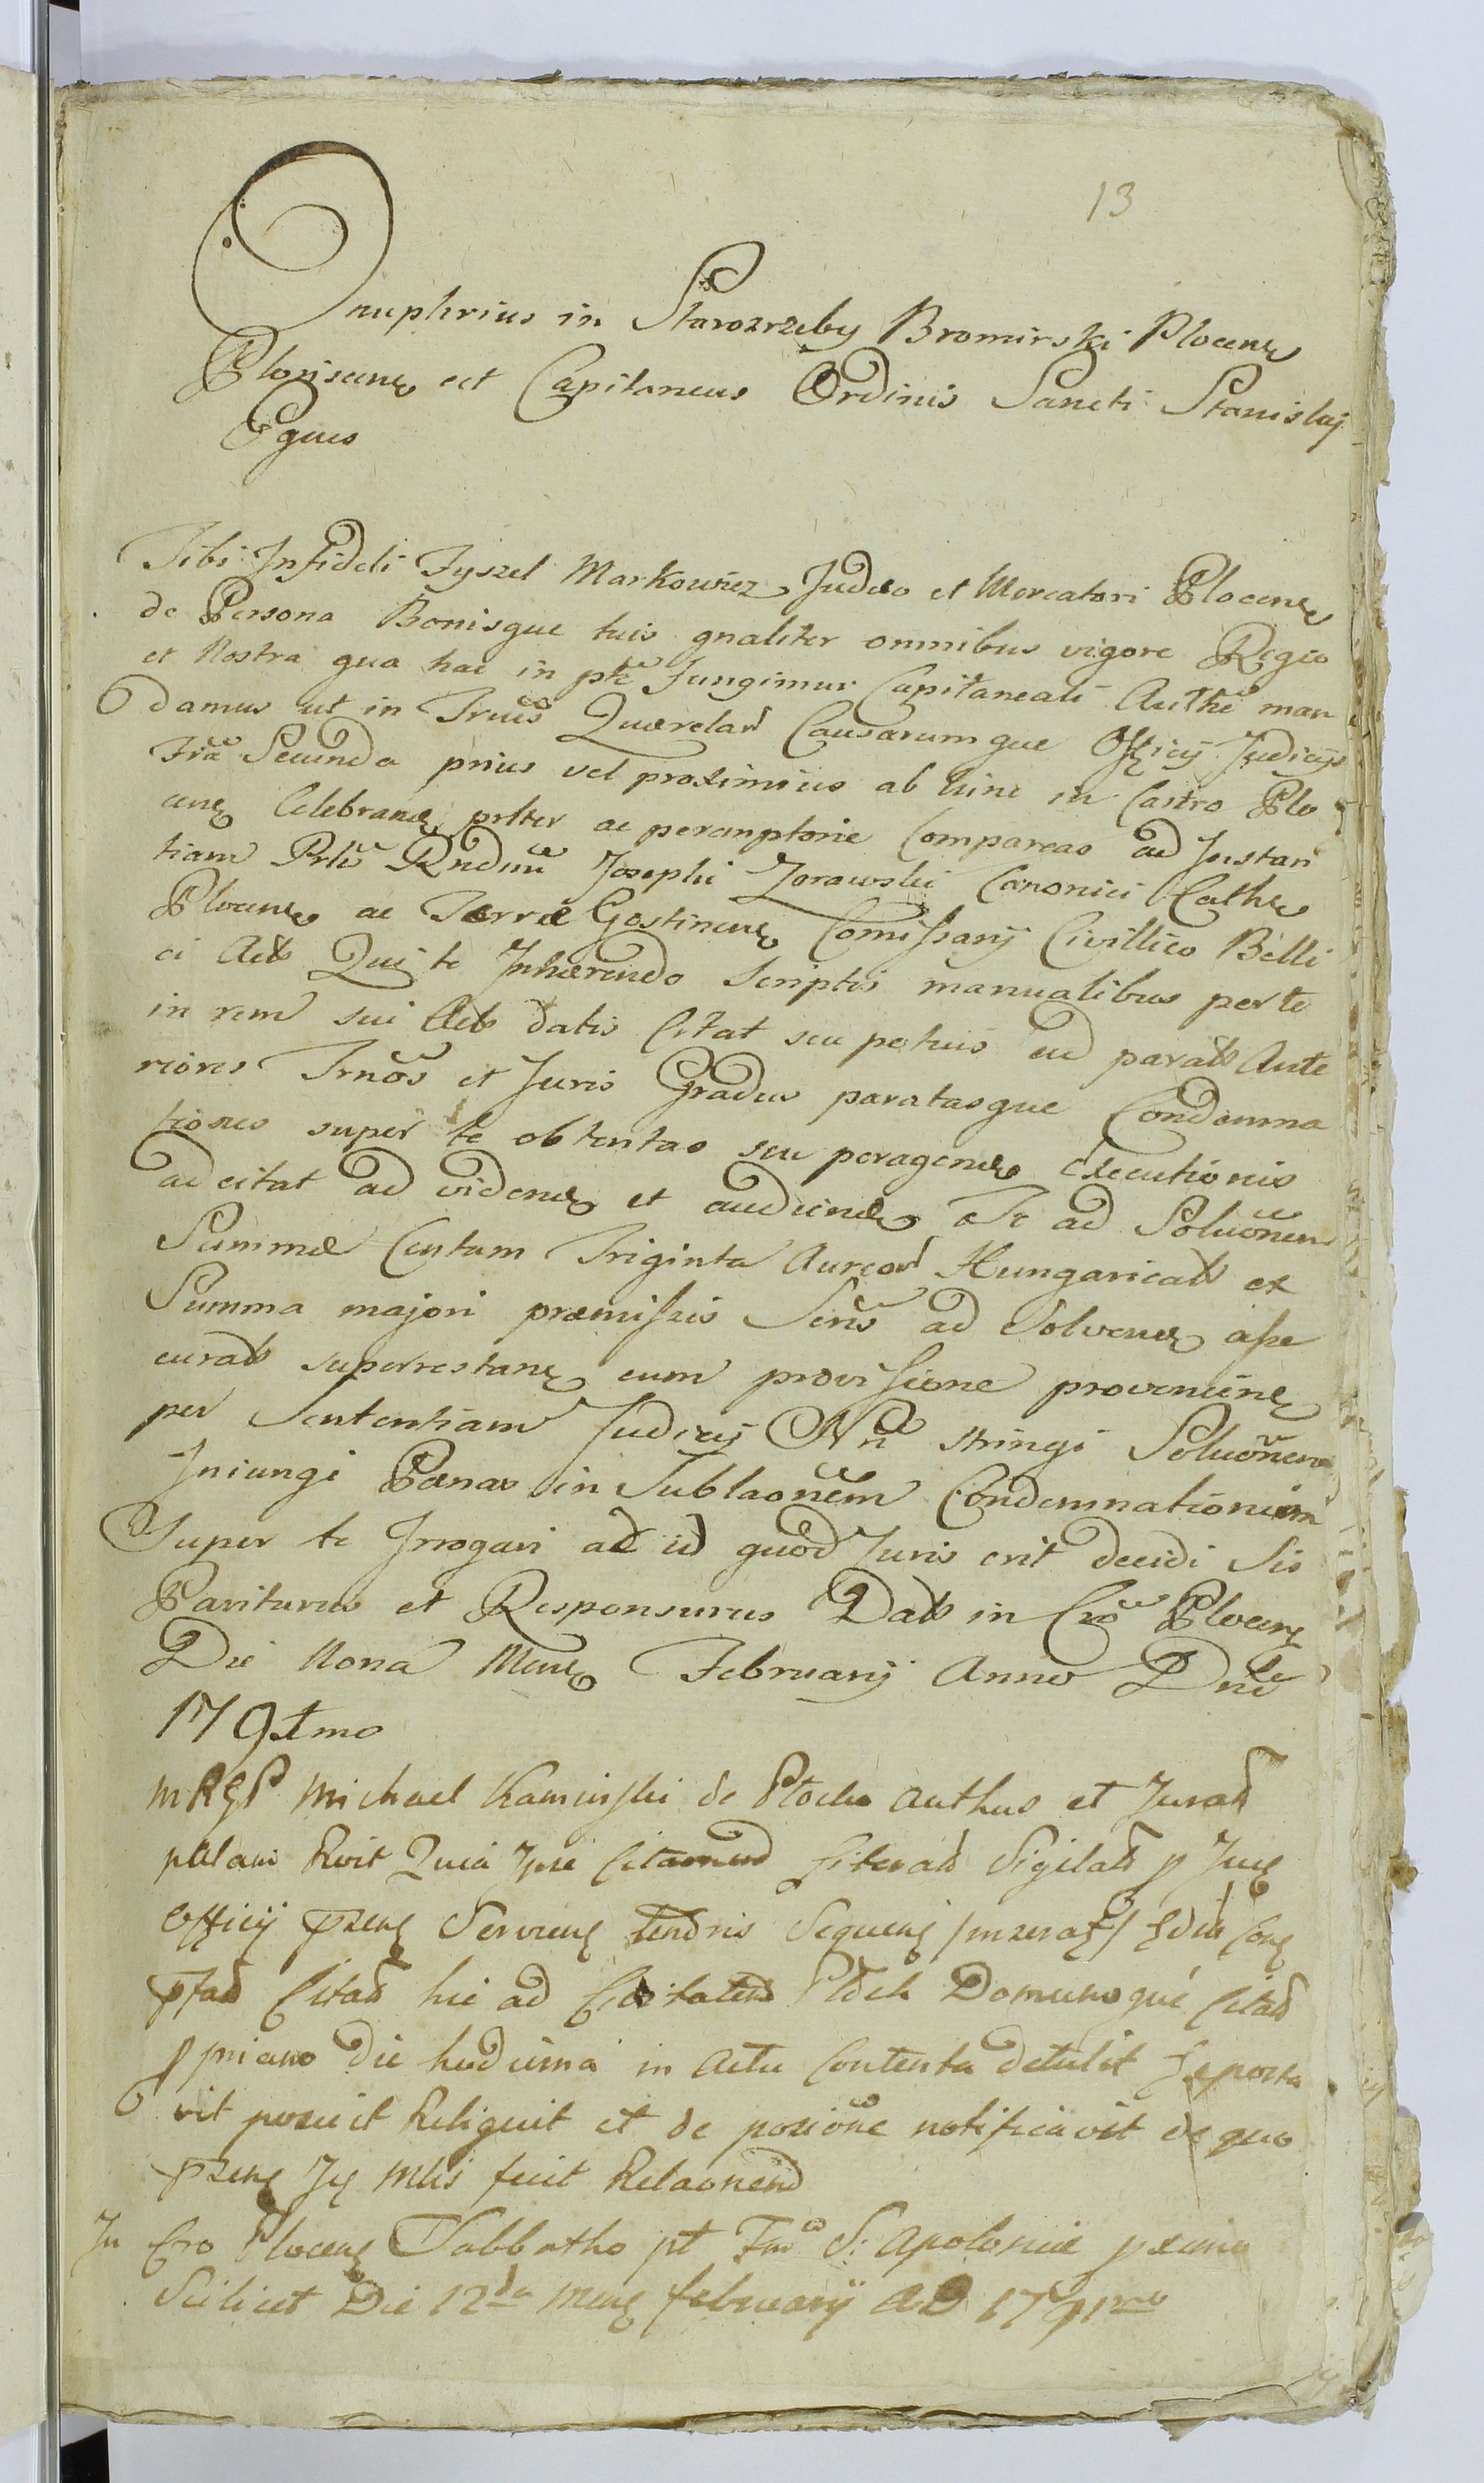 13
Onuphrius in Starozrzeby Bromirski Plocen
Plonscen ect Capitaneus Ordinis Sancti Stanislaj
Eques
Tibi Infideli Fyszel Markowicz Judæo et Mercatori Plocen
de Persona Bonisque tuis gnaliter omnibus vigore Regia
et Nostra qua hac in pte fungimur Capitaneali Authe man
damus ut in Trnis Querelar Causarumque Officij Judicijs
Fria Secunda prius vel proximius ab hinc in Castro Plo
cen Celebran prlter ac peremptorie Compareas ad Instan
tiam Prlis Rndmi Josephi Zorawski Canonici Cath
Plocen ac Terræ Gostinen Comissarij Civillico Belli
ci Act Qui te Inhærendo Scriptis manualibus per te
in rem sui Act datis Citat seu potius ad parat Ante
riores Trnos et Juris Gradus paratasque Condemna
tiones super te obtentas seu peragen Executionis
adcitat ad viden et audien Te ad Soluonem
Summæ Centum Triginta Aureor Hungarical ex
Summa majori præmissis Scris ad Solven asse
curat superrestan cum provisione provenien
per Sententiam Judicij Nri stringi Soluonem
Iniungi Pænas in Sublaonem Condemnationum
Super te Irrogari ac id quod Juris erit decidi Sis
Pariturus et Responsurus Dat in Cro Plocen
Die Nona Men Februarij Anno Dni
1791mo
MRGP Michael Kaminski de Plocko Authus et Jurat
palam Rvit Quia Ipse Citaonem Literat Sigilat p Jus
Officij Pzen Servien tenoris Sequen
Citat hic ad Civitatem Plock Domumque Citat
die hodierna in Actu Contenta detulit Reporta
vit posuit Reliquit et de posione notificavit de quo
pzens fecit Relaonem
In Cro Plocen Sabbatho pt Fm S: Apoloniæ
Scilicet Die 12da Men februarij AD 1791mo